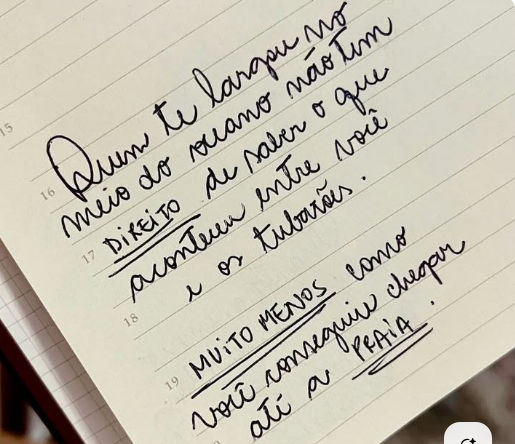 15
Quem te largou no
16 meio do oceano não tem
17 DIREITO de saber o que
aconteceu entre você
18 e os tubarões.
19 MUITO MENOS como
você conseguiu chegar
até a PRAIA.